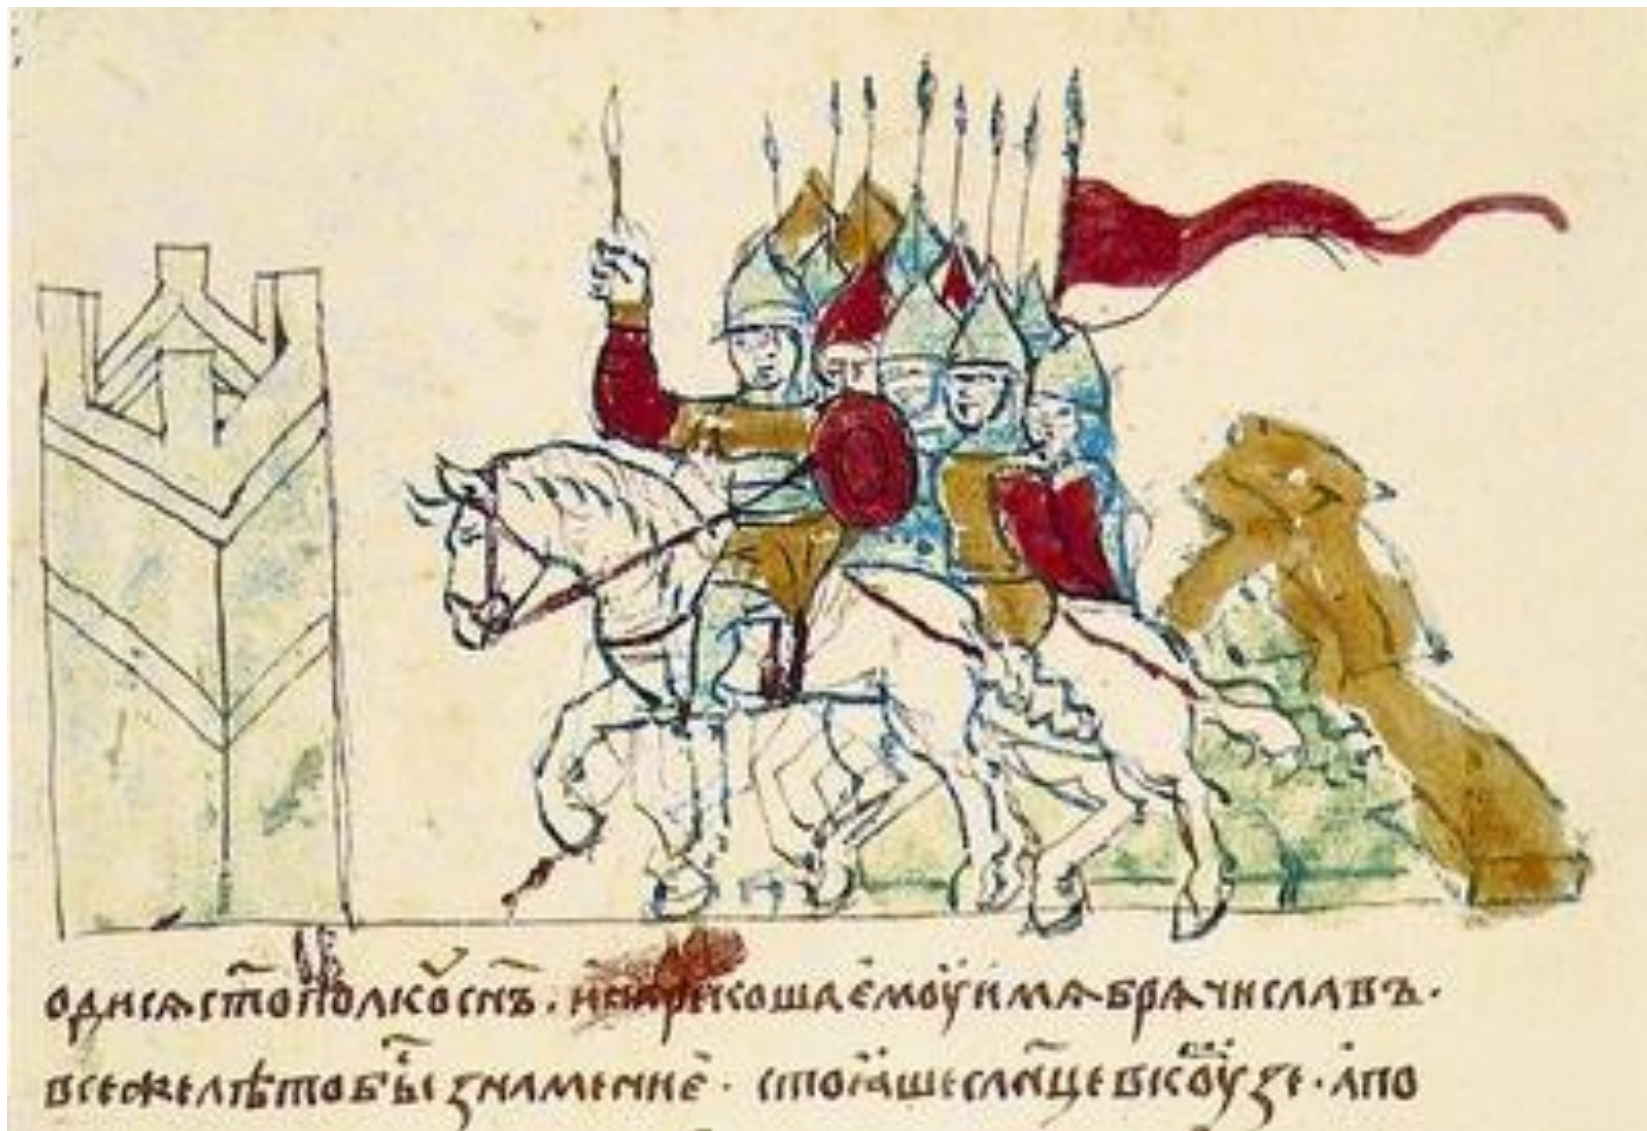 одисѧ ст҃ополкоу сн҃ъ · и нарекоша емоу имѧ брѧчиславъ ·
в се же лѣто бы҃ знамение · стоꙗше слн҃це в кроузе · а по